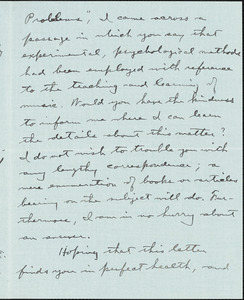 Problems", I came across a
passage in which you say that
experimental, psychological methods
had been employed with reference
to the teaching and learning of
music. Would you have the kindness
to inform me where I can learn
the details about this matter?
I do not wish to trouble you with
any lengthy correspondence; a
mere enumeration of books or articles
bearing on the subject will do. Fur-
thermore, I am in no hurry about
an answer.
Hoping that this letter
finds you in perfect health, and